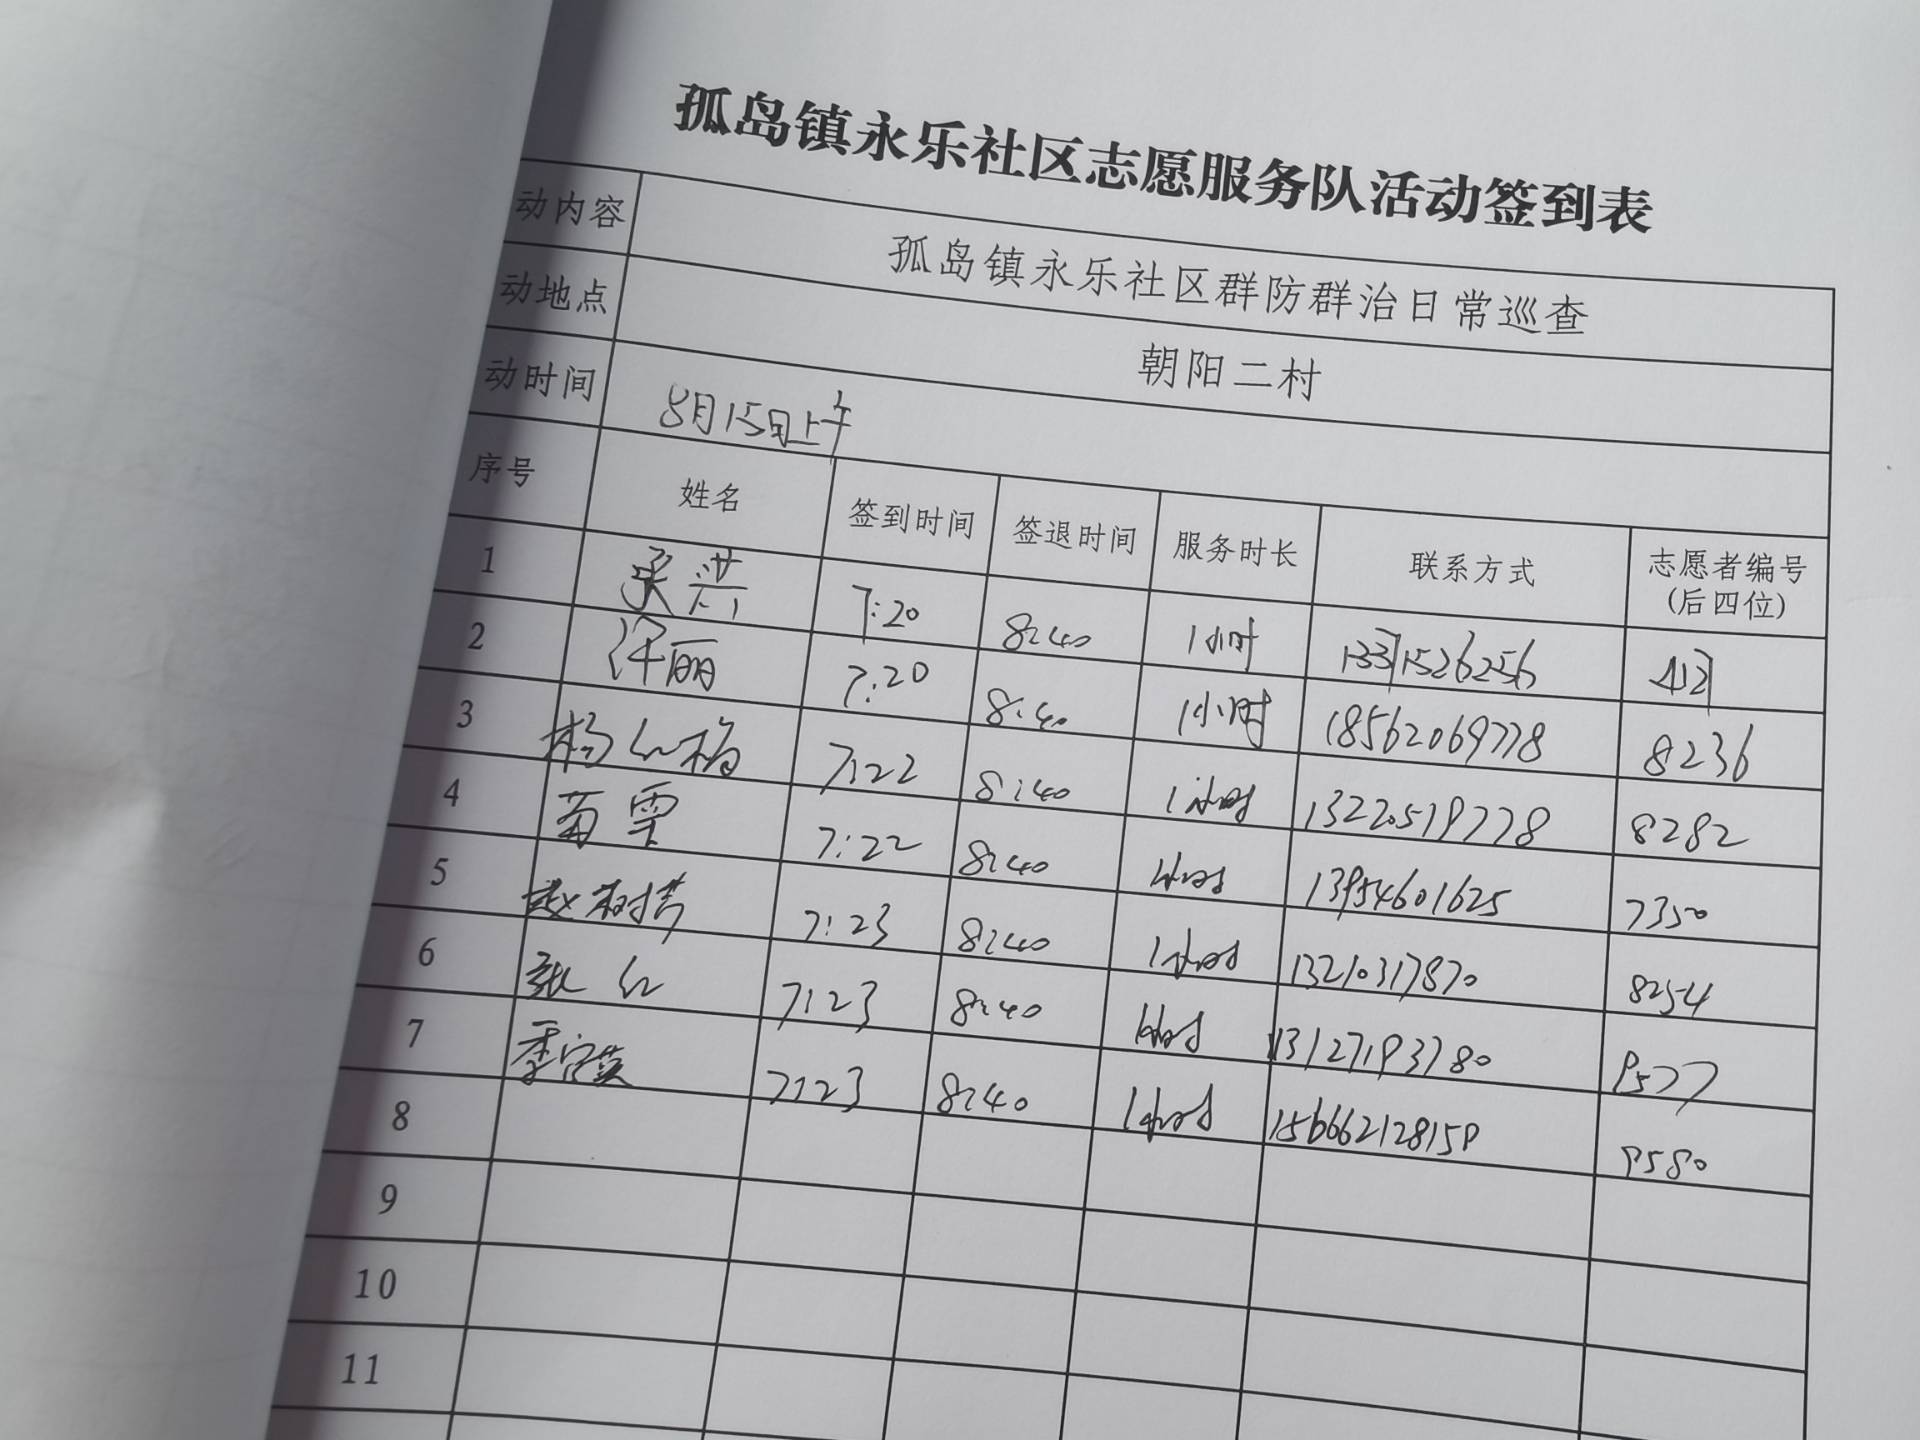 孤岛镇永乐社区志愿服务队活动签到表
动内容 孤岛镇永乐社区群防群治日常巡查
动地点 朝阳二村
动时间 8月15日上午
序号 姓名 签到时间 签退时间 服务时长 联系方式 志愿者编号
(后四位)
1 7:20 8:40 1小时 13371526256
2 许丽 7:20 8:40 1小时 18562069778 8236
3 杨红梅 7:22 8:40 1小时 13220519778 8282
4 苗雪 7:22 8:40 1小时 13954601625 7350
5 赵树芳 7:23 8:40 1小时 13210317870 8254
6 张红 7:23 8:40 1小时 13127193780 9577
7 季宝英 7:23 8:40 1小时 9580
8
9
10
11